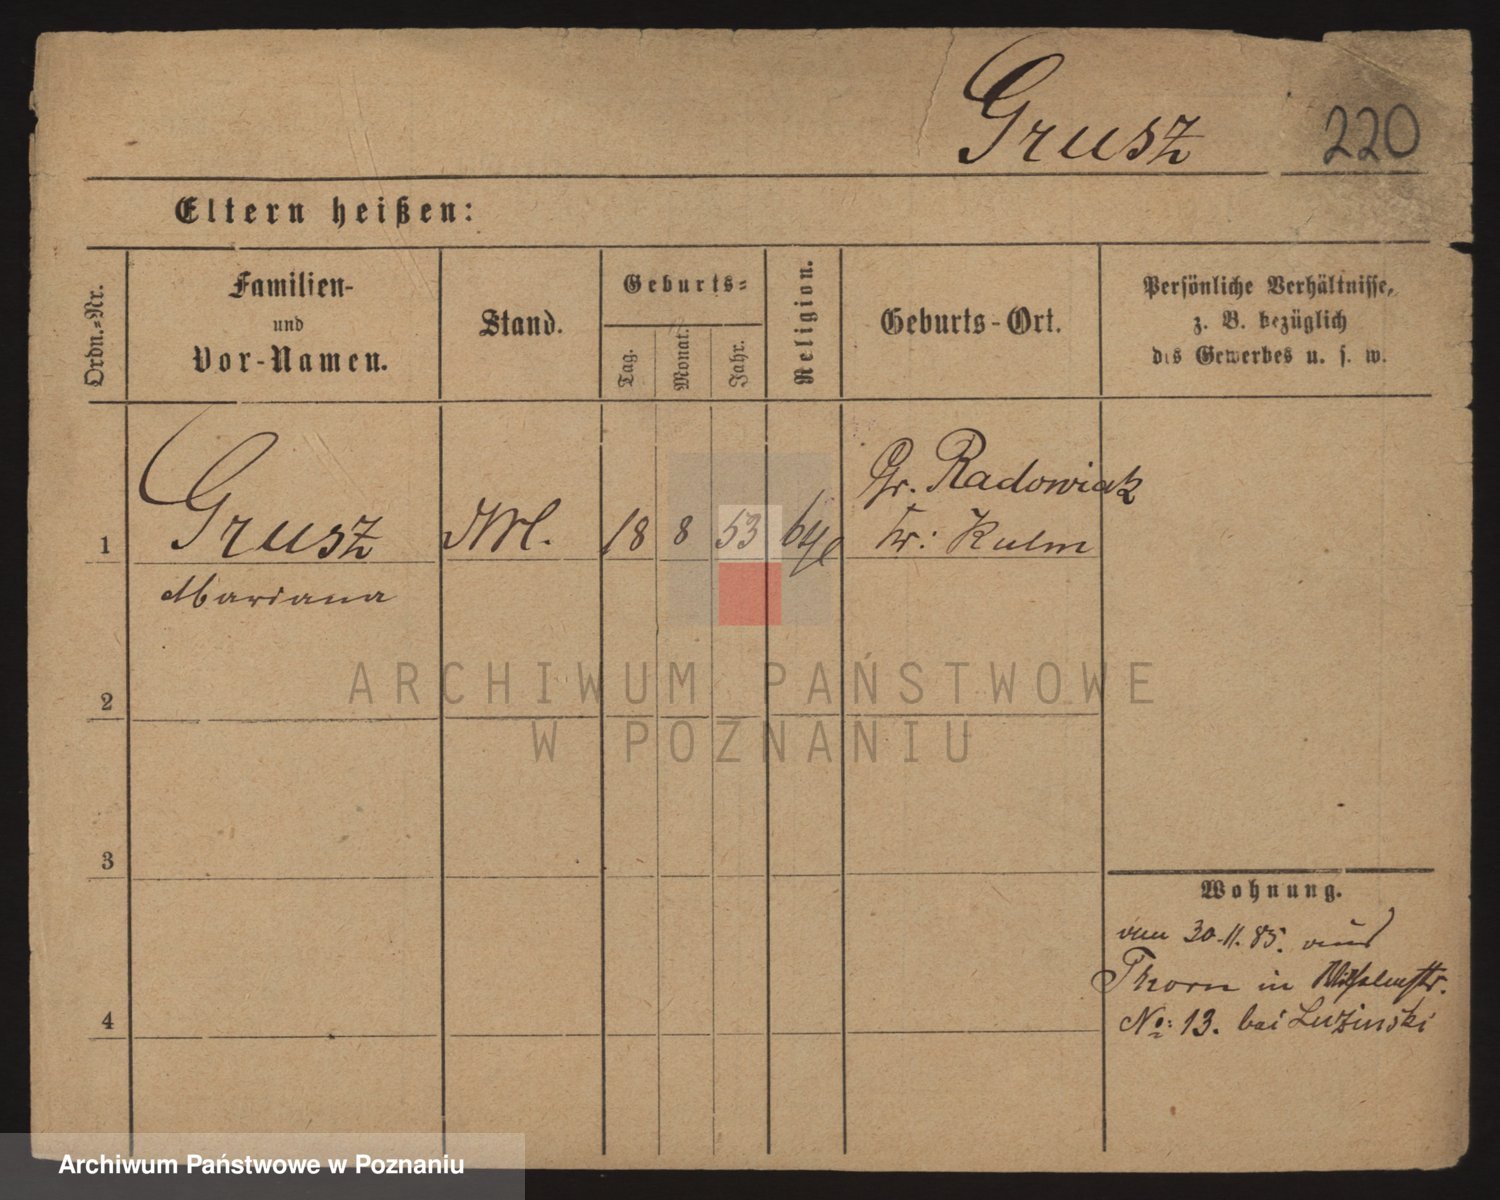 Grusz 220
Eltern heißen:
Ordn.-Nr.
Familien-
und
Vor-Namen.
Stand.
Geburts-
Tag.
Monat.
Jahr.
Religion.
Geburts-Ort.
Persönliche Verhältnisse,
z. B. bezüglich
des Gewerbes u. s. w.
1 Grusz 18 8 53 Gr. Radowiak
Kr: Kulm
Mariana
2
3
4
Wohnung.
vom 30.11.85. aus
Thorn in Wilhelmstr.
No: 13. bei Luzinski
ARCHIWUM PAŃSTWOWE
W POZNANIU
Archiwum Państwowe w Poznaniu